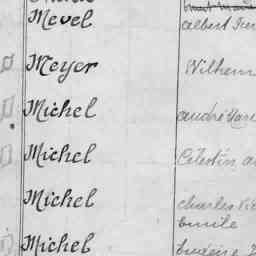 Mevel albert
Meyer Wilhem
Michel andré
Michel Célestin
Michel charles
emile
Michel eugène